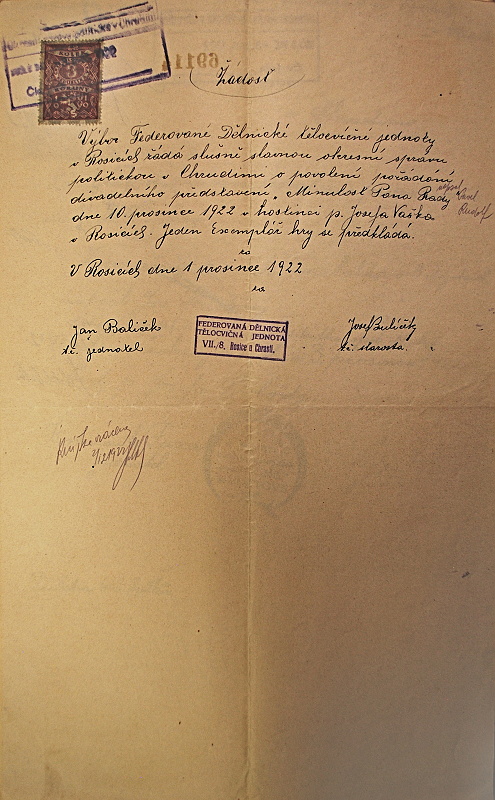 Žádost
Výbor Federované Dělnické tělocvičné jednoty
v Rosicích žádá slušně slavnou okresní správu
politickou v Chrudimi o povolení pořádání
divadelního představení „Minulost Pana Rady
dne 10. prosince 1922 v hostinci p. Josefa Vaška
v Rosicích. Jeden Exemplář hry se předkládá.
za
V Rosicích dne 1 prosince 1922
za
Jan Balíček
tč. jednatel
FEDEROVANÁ DĚLNICKÁ
TĚLOCVIČNÁ JEDNOTA
VII./8. Rosice u Chrasti.
tč. starosta